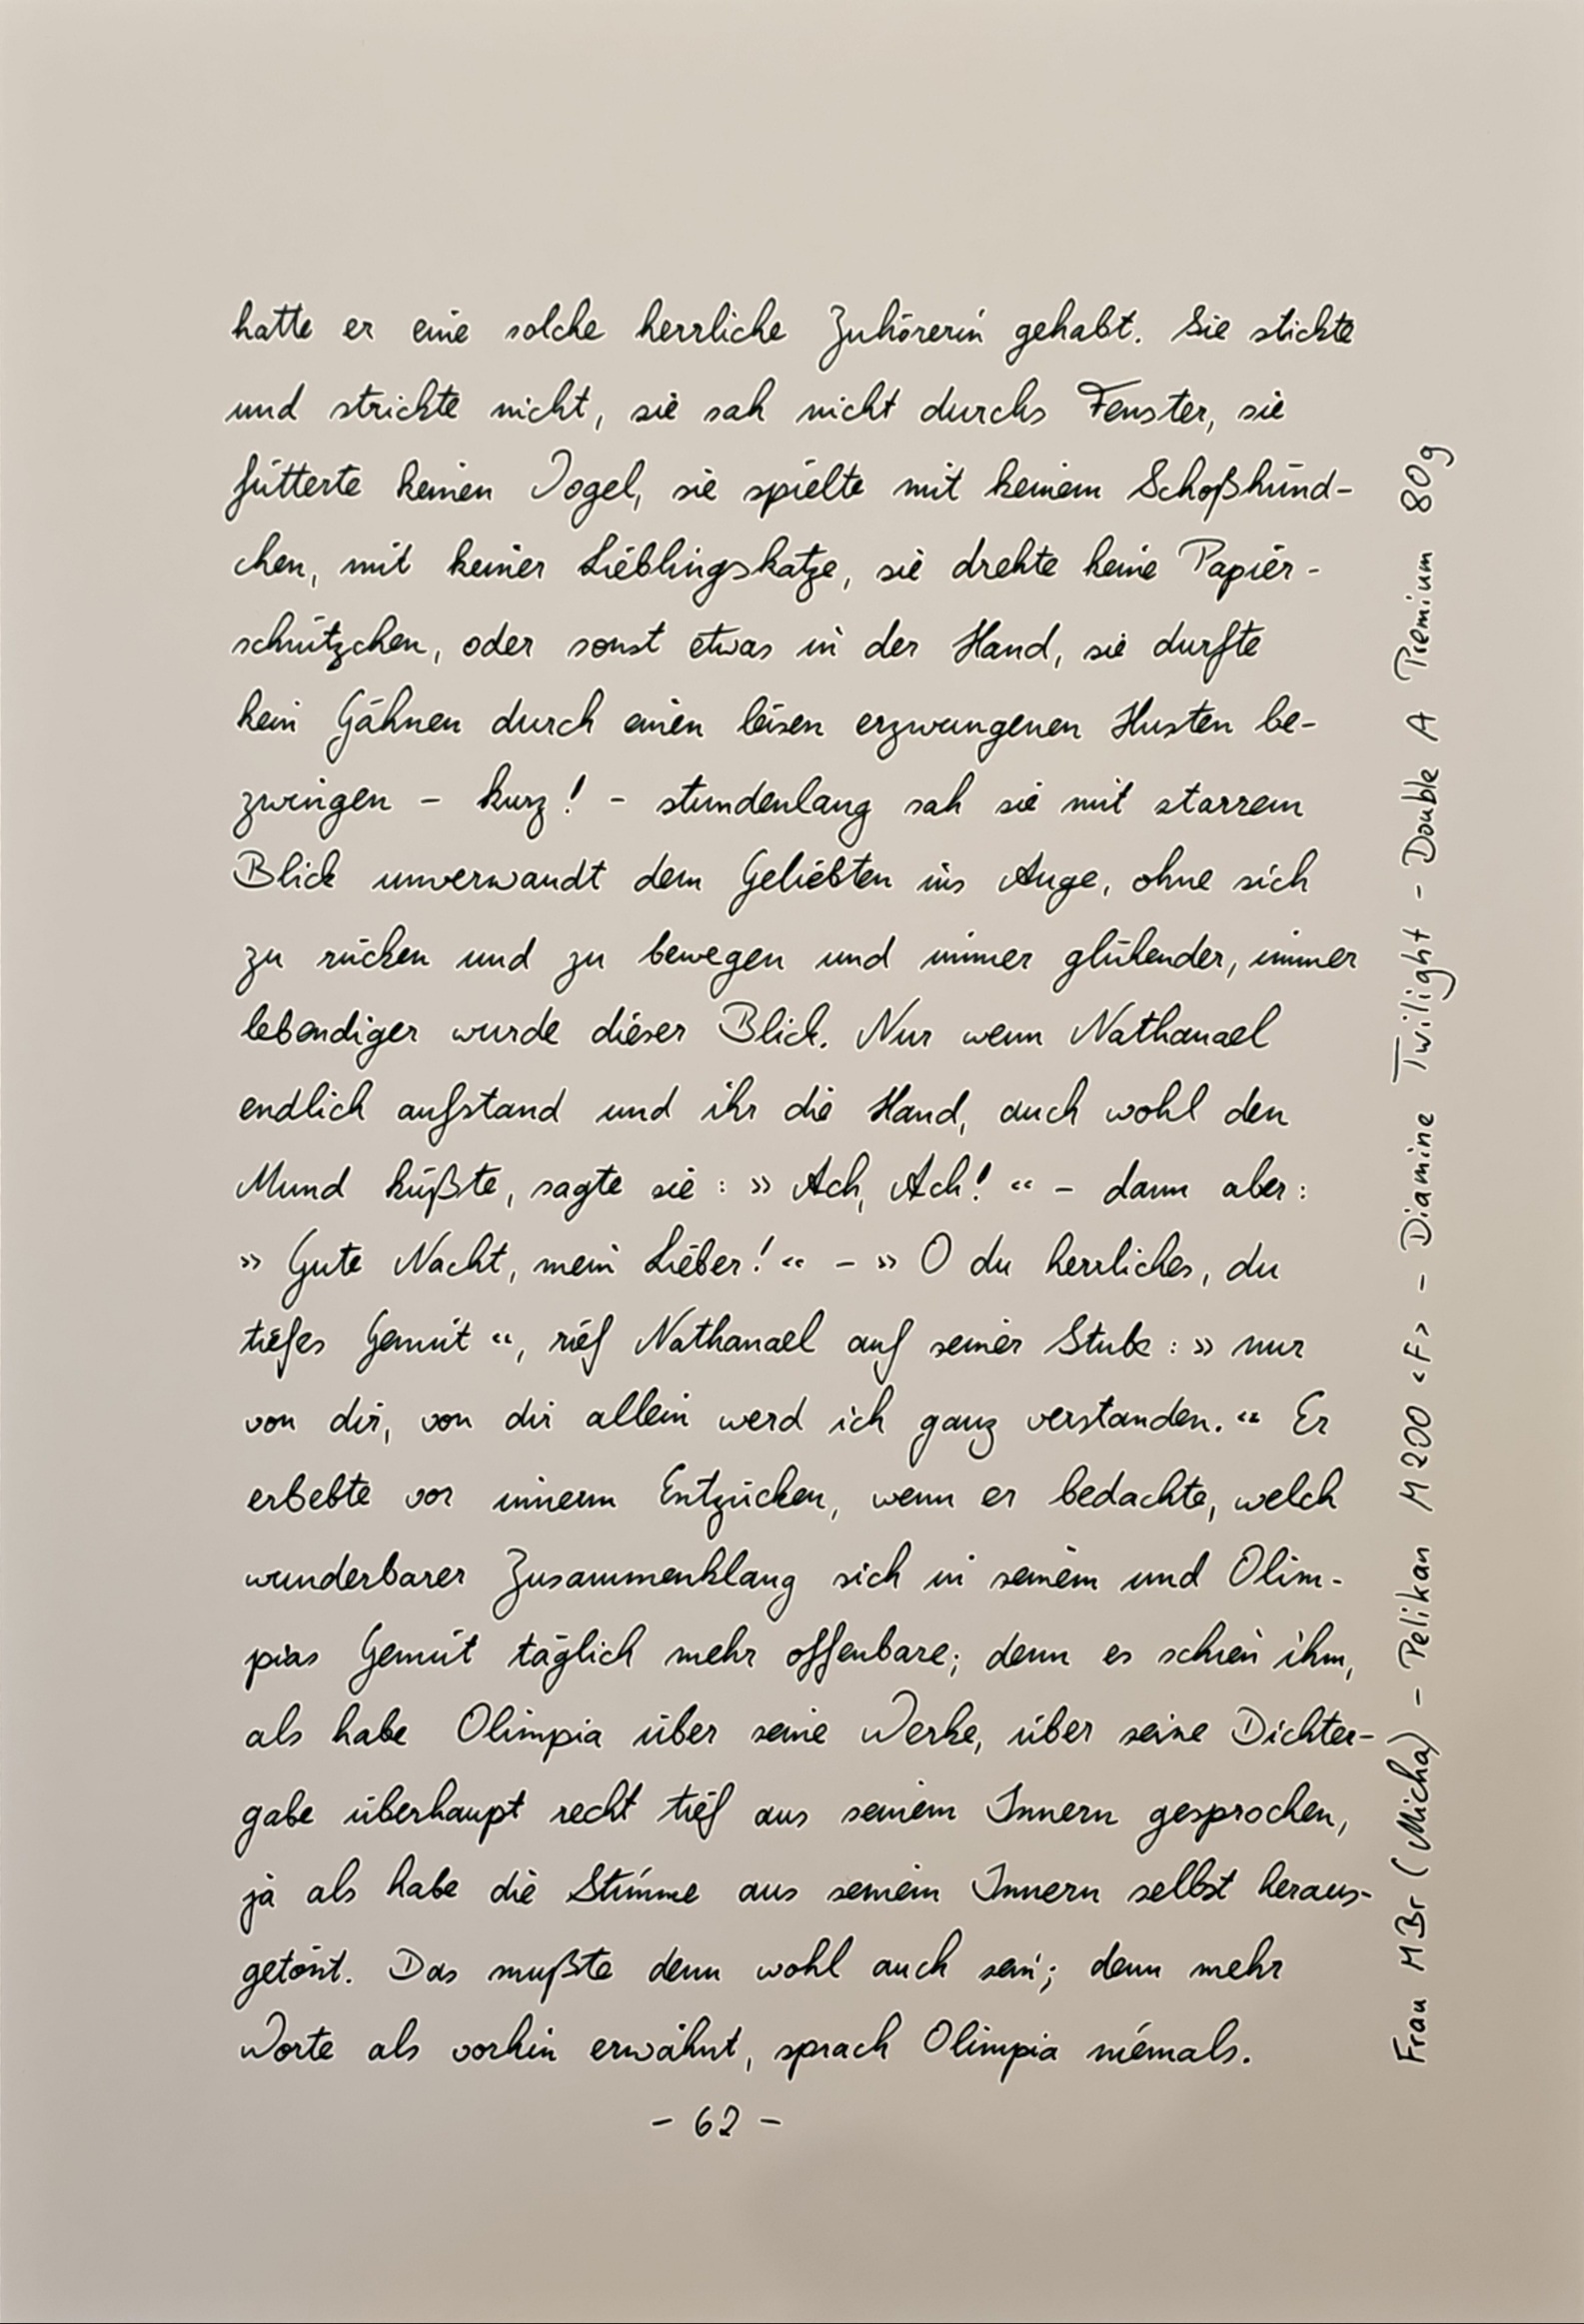 hatte er eine solche herrliche Zuhörerin gehabt. Sie stickte
und strickte nicht, sie sah nicht durchs Fenster, sie
fütterte keinen Vogel, sie spielte mit keinem Schoßhünd-
chen, mit keiner Lieblingskatze, sie drehte keine Papier-
schnitzchen, oder sonst etwas in der Hand, sie durfte
kein Gähnen durch einen leisen erzwungenen Husten be-
zwingen – kurz! – stundenlang sah sie mit starrem
Blick unverwandt dem Geliebten ins Auge, ohne sich
zu rücken und zu bewegen und immer glühender, immer
lebendiger wurde dieser Blick. Nur wenn Nathanael
endlich aufstand und ihr die Hand, auch wohl den
Mund küßte, sagte sie: » Ach, Ach! « – dann aber:
» Gute Nacht, mein Lieber! « – » O du herrliches, du
tiefes Gemüt «, rief Nathanael auf seiner Stube: » nur
von dir, von dir allein werd ich ganz verstanden. « Er
erbebte vor innerm Entzücken, wenn er bedachte, welch
wunderbarer Zusammenklang sich in seinem und Olim-
pias Gemüt täglich mehr offenbare; denn es schien ihm,
als habe Olimpia über seine Werke, über seine Dichter-
gabe überhaupt recht tief aus seinem Innern gesprochen,
ja als habe die Stimme aus seinem Innern selbst heraus-
getönt. Das mußte denn wohl auch sein; denn mehr
Worte als vorhin erwähnt, sprach Olimpia niemals.
– 62 –
Frau MBr (Micha) – Pelikan M200 «F» – Diamine Twilight – Double A Premium 80g